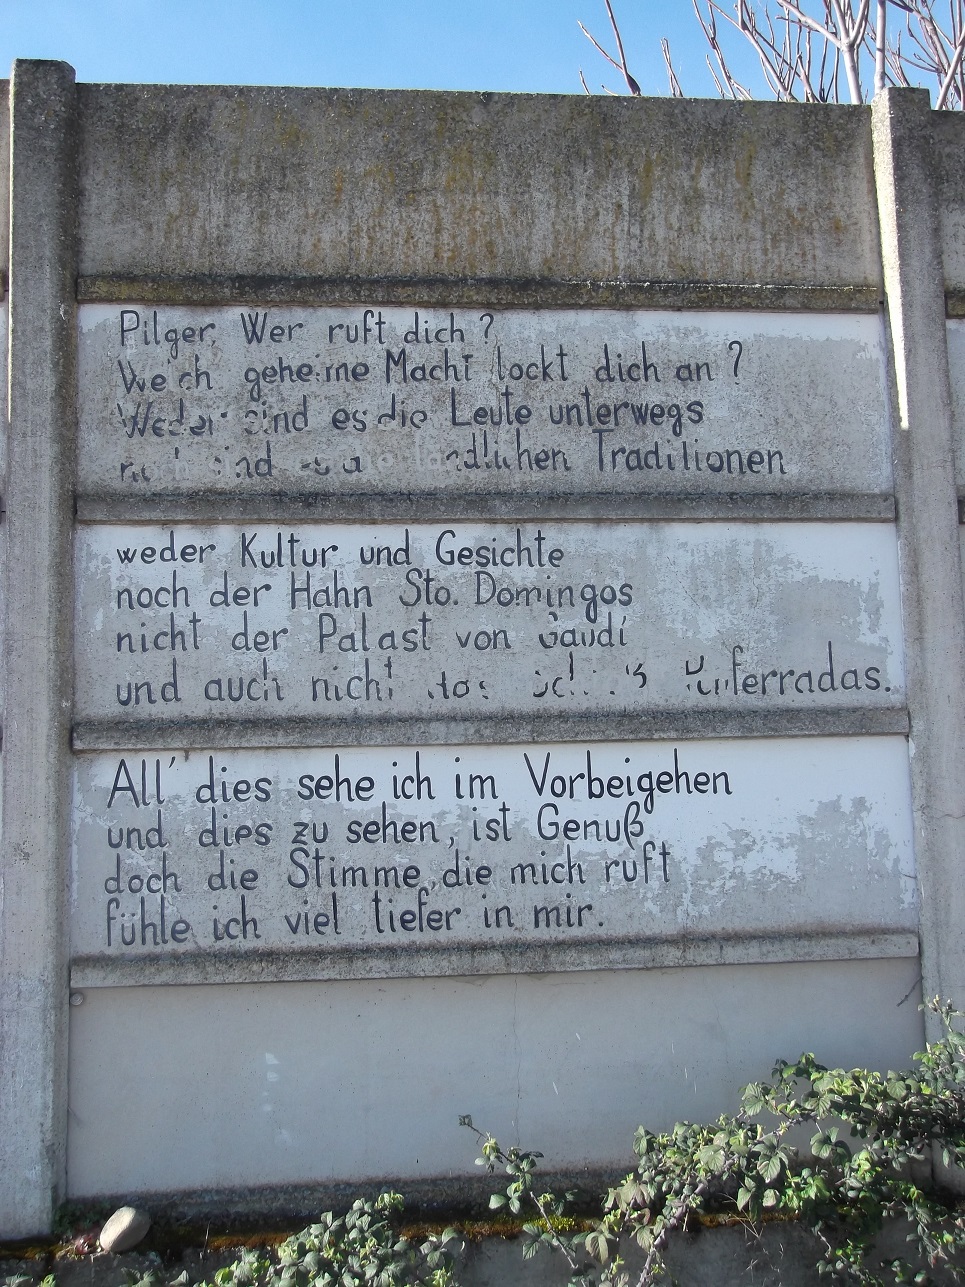 Pilger, Wer ruft dich?
Welch geheime Macht lockt dich an?
Weder sind es die Leute unterwegs
noch sind ländlichen Traditionen
weder Kultur und Gesichte
noch der Hahn Sto. Domingos
nicht der Palast von Gaudí
und auch nicht das Schloß Ponferradas.
All' dies sehe ich im Vorbeigehen
und dies zu sehen, ist Genuß
doch die Stimme, die mich ruft
fühle ich viel tiefer in mir.